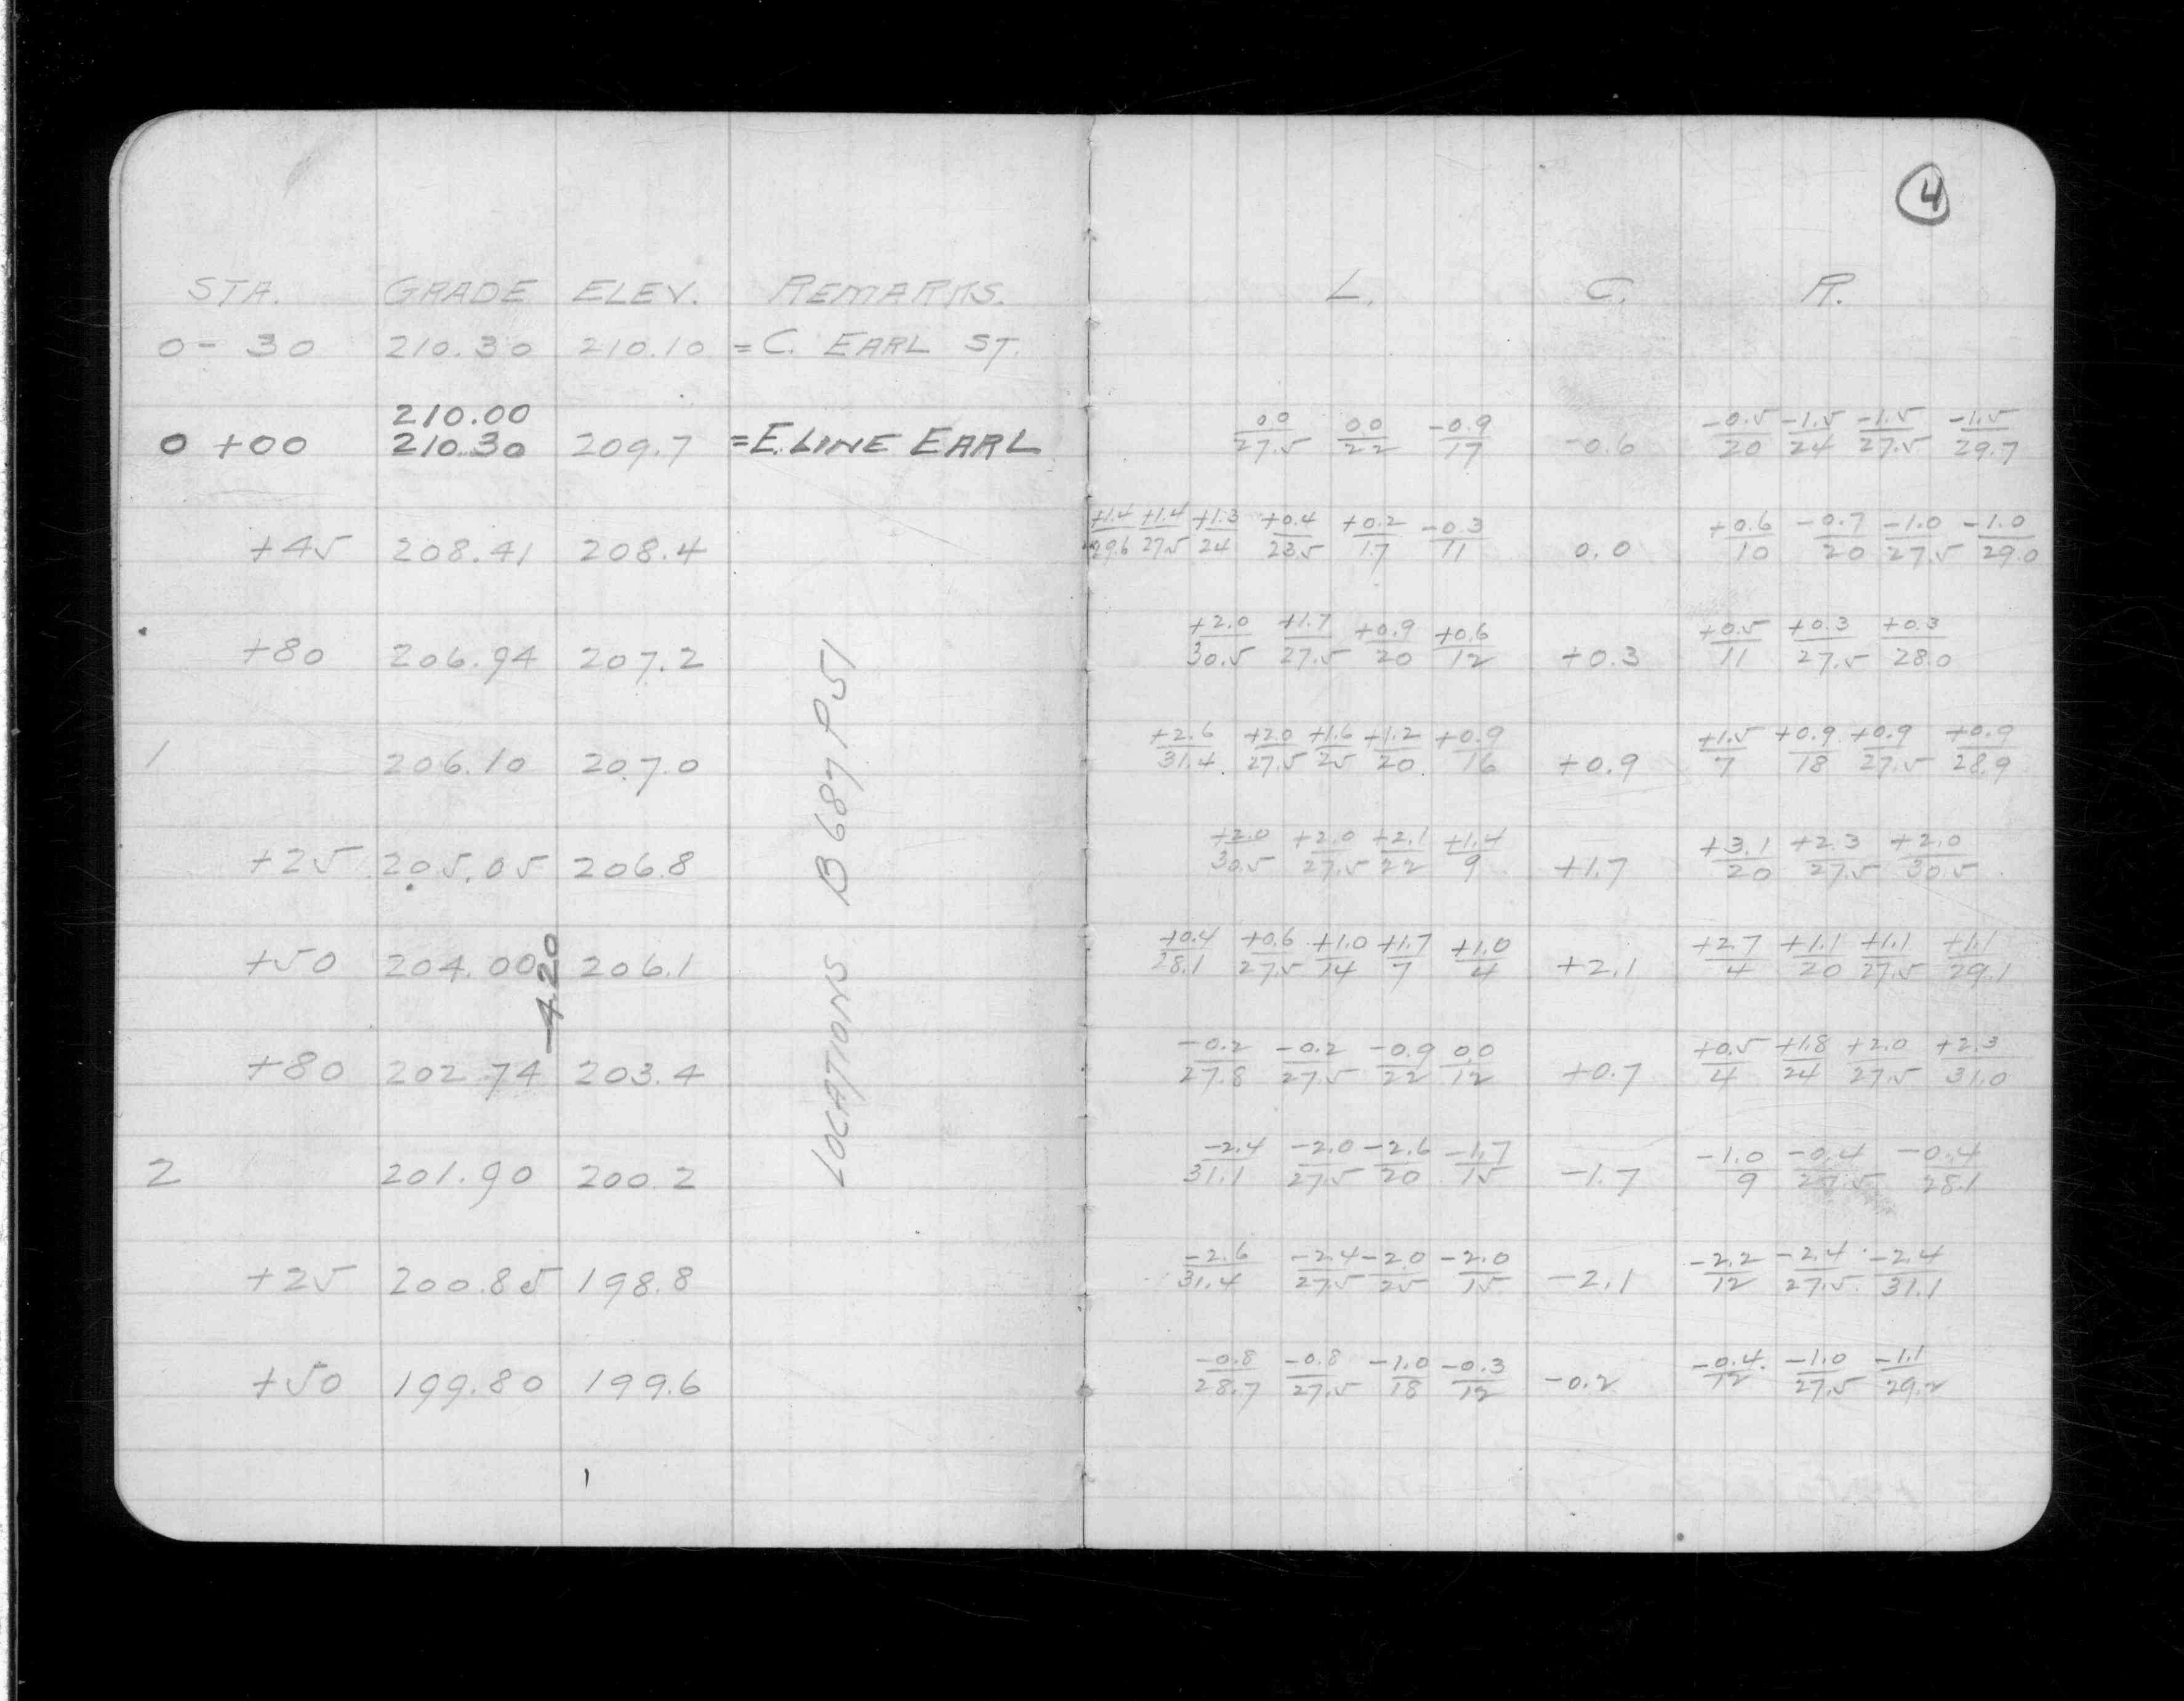 4
STA. GRADE ELEV. REMARKS. L. C. R.
0- 30 210.30 210.10 =C. EARL ST.
210.00
0 +00 210.30 209.7 =E. LINE EARL 00/27.5 00/22 -0.9/17 -0.6 -0.5/20 -1.5/24 -1.5/27.5 -1.5/29.7
+45 208.41 208.4 +1.4/29.6 +1.4/27.5 +1.3/24 +0.4/23.5 +0.2/17 -0.3/11 0.0 +0.6/10 -0.7/20 -1.0/27.5 -1.0/29.0
+80 206.94 207.2 +2.0/30.5 +1.7/27.5 +0.9/20 +0.6/12 +0.3 +0.5/11 +0.3/27.5 +0.3/28.0
1 206.10 207.0 +2.6/31.4 +2.0/27.5 +1.6/25 +1.2/20 +0.9/16 +0.9 +1.5/7 +0.9/18 +0.9/27.5 +0.9/28.9
+25 205.05 206.8 +2.0/30.5 +2.0/27.5 +2.1/22 +1.4/9 +1.7 +3.1/20 +2.3/27.5 +2.0/30.5
+50 204.00 206.1 +0.4/28.1 +0.6/27.5 +1.0/14 +1.7/7 +1.0/4 +2.1 +2.7/4 +1.1/20 +1.1/27.5 +1.1/29.1
-4.20
+80 202.74 203.4 -0.2/27.8 -0.2/27.5 -0.9/22 0.0/12 +0.7 +0.5/4 +1.8/24 +2.0/27.5 +2.3/31.0
2 201.90 200.2 -2.4/31.1 -2.0/27.5 -2.6/20 -1.7/15 -1.7 -1.0/9 -0.4/27.5 -0.4/28.1
+25 200.85 198.8 -2.6/31.4 -2.4/27.5 -2.0/25 -2.0/15 -2.1 -2.2/12 -2.4/27.5 -2.4/31.1
+50 199.80 199.6 -0.8/28.7 -0.8/27.5 -1.0/18 -0.3/12 -0.2 -0.4/12 -1.0/27.5 -1.1/29.2
LOCATIONS B687 P51